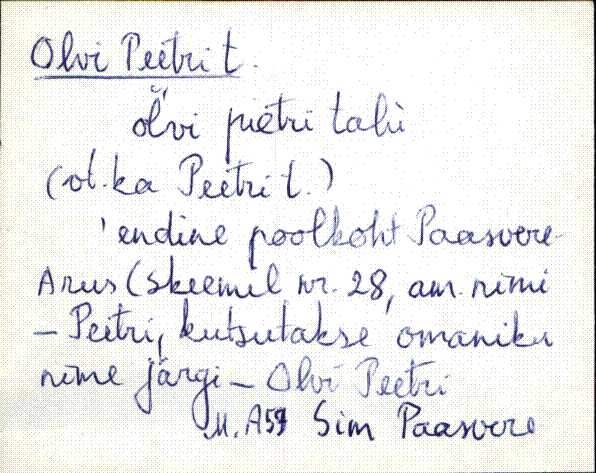 Olvi Peetri t.
ol̆vi piẹtri talù
(vt. ka Peetri t.)
'endine poolkoht Paasvere-
Arus (skeemil nr. 28, am. nimi
– Peetri, kutsutakse omaniku
nime järgi – Olvi Peetri
M. A59 Sim Paasvere